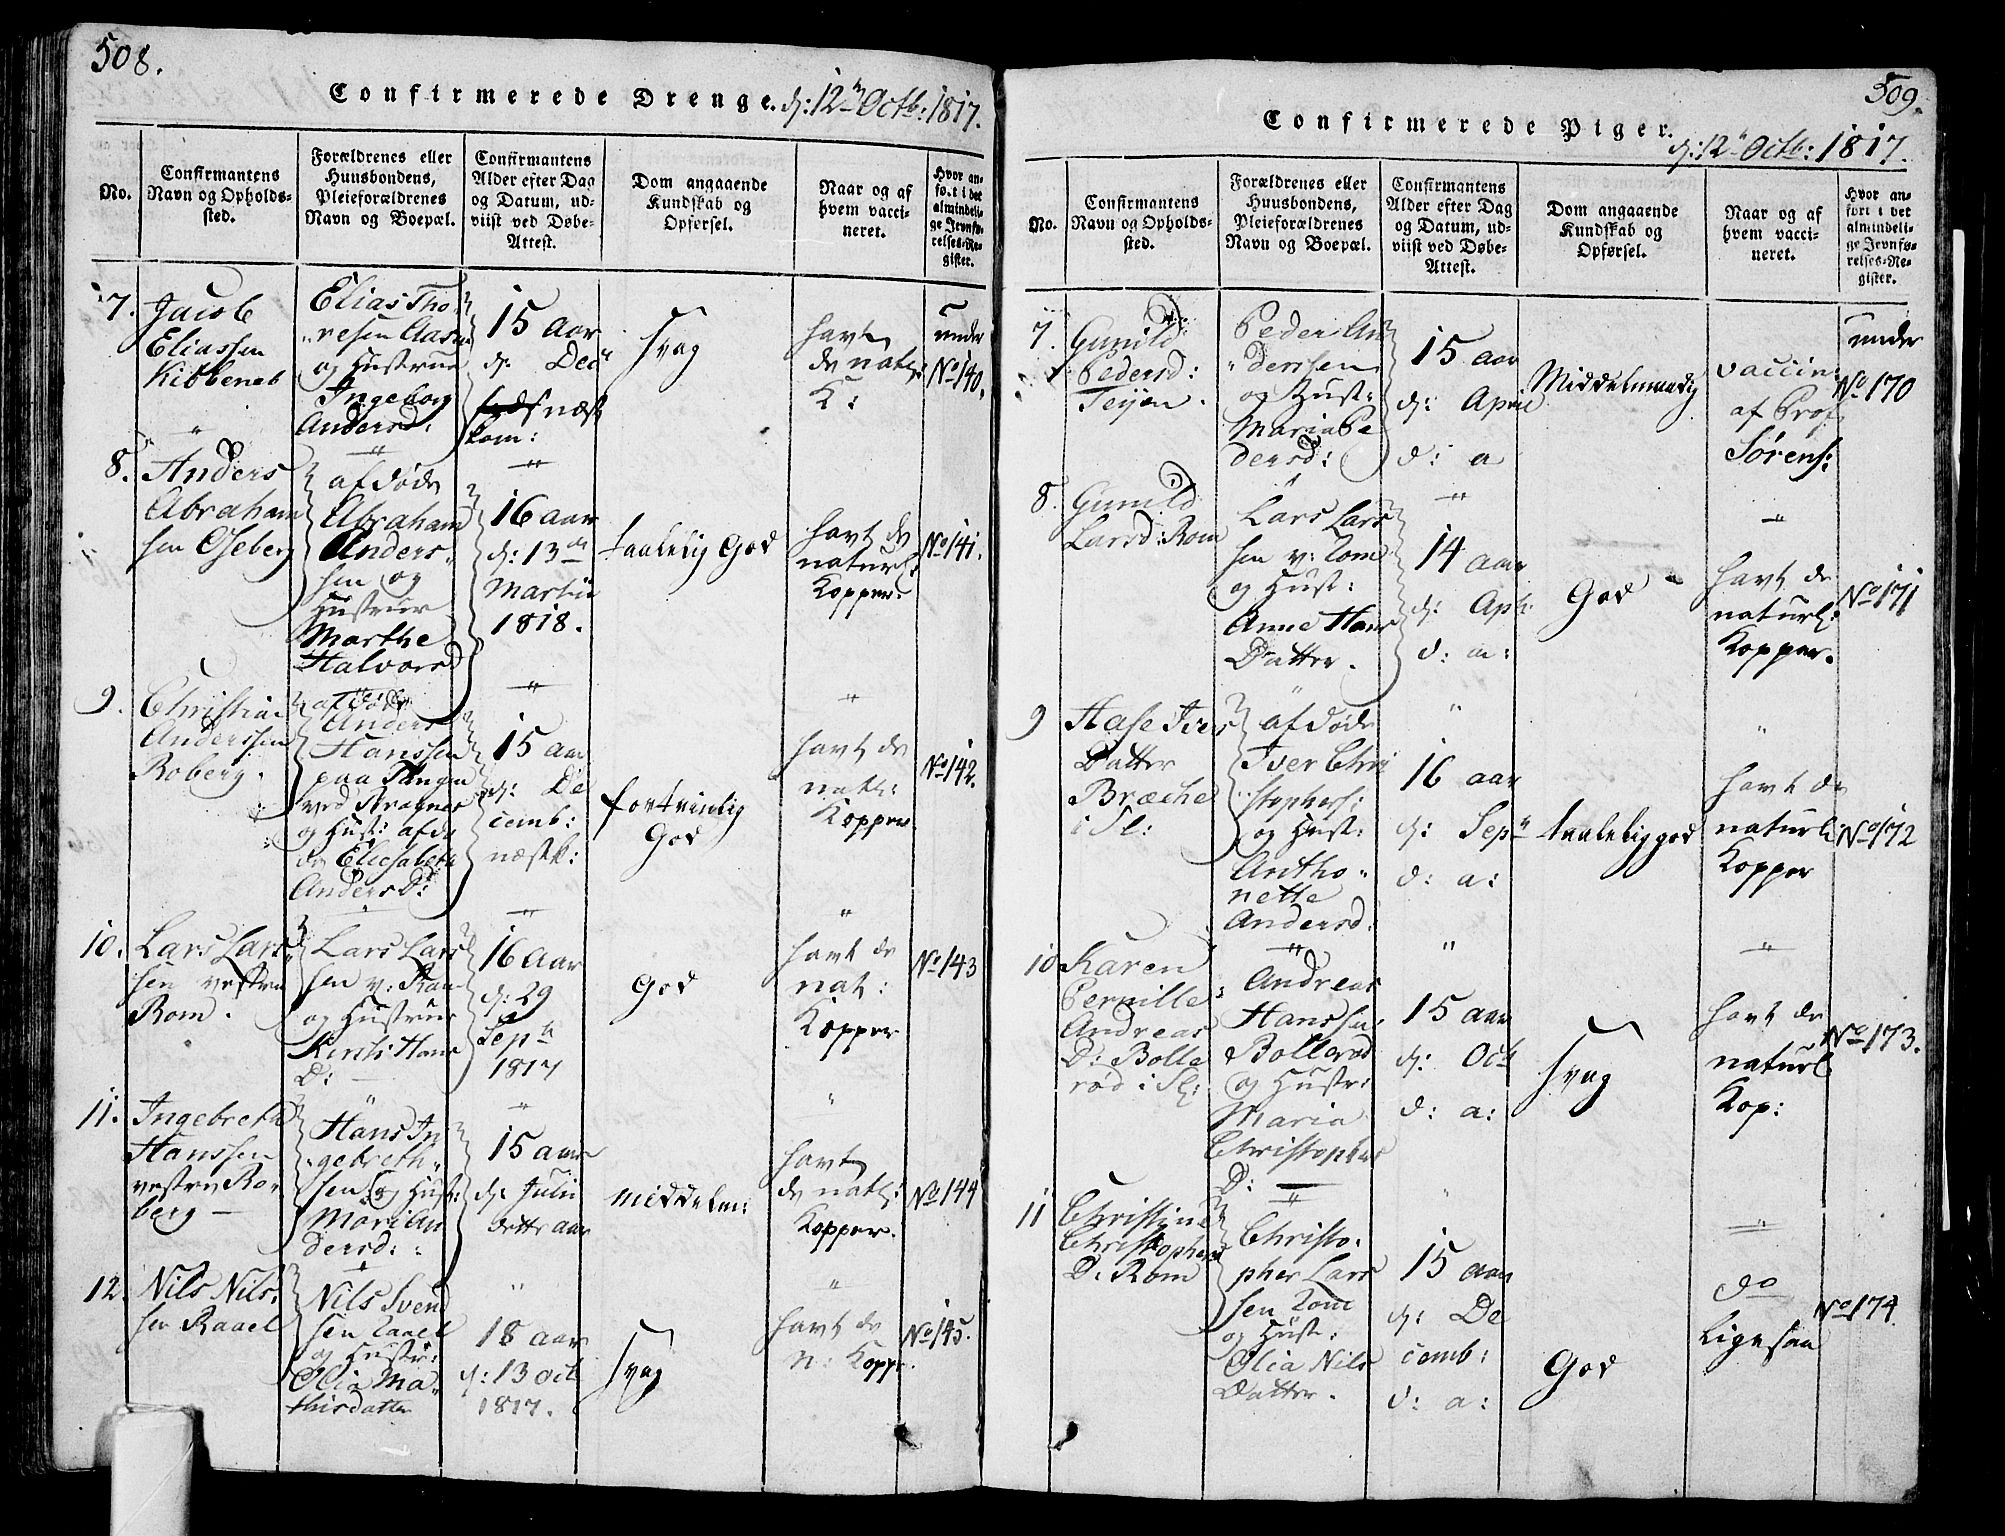 508.
Confirmerede Drenge. d: 12te Octb: 1817.
No.
Confirmantens
Navn og Opholds-
sted.
Forældrenes eller
Huusbondens,
Pleieforældrenes
Navn og Boepæl.
Confirmantens
Alder efter Dag
og Datum, ud-
viist ved Døbe-
Attest.
Dom angaaende
Kundskab og
Opførsel.
Naar og af
hvem vacci-
neret.
Hvor an-
ført i det
almindeli-
ge Jevnfø-
relses-Re-
gister.
7.
Jacob
Eliassen
Elias Tho
resen
og Hustrue
Ingeborg
Andersd:
15 Aar
d: Dec
næst
kom:
svag
havt
de natl:
K:
under
No 140.
8.
Anders
Abraham
sen Oseberg
afdøde
Abraham
Anders
sen og
Hustrue
Marthe
Halvorsd
16 aar
d: 13de
Martii
1818.
taalelig God
havt de
naturl:
Kopper.
No 141.
9.
Christian
Anderssen
Roberg.
afdøde
Anders
Hanssen
paa Tangen
ved Bragnes
og Hust: afdø
de Elisabeth
Anders D:
15 aar
d: De
cemb:
næstk:
fortrinlig
God
havt de
natl:
Kopper
No 142.
10.
Lars Lars
sen vestre
Rom.
Lars Lars
sen v: Rom
og Hustrue
Kirsti Hans
D:
16 Aar
d: 29
Sept
1817
God
havt de
nat:
Kopper
No 143
11.
Ingebreth
Hanssen
vestre Ro
berg
Hans In
gebreth
sen og Hust:
Mari An
dersd:
15 aar
d: Julii
dette aar
middelm:
havt
de natl:
Kopper.
No 144
12.
Nils Nils
sen Raael
Nils Svend
sen Raael
og Hustr:
Olia Ma
thisdatter
18 aar
d: 13 Oct
1817.
svag
havt de
n: Kopp.
No 145.
509.
Confirmerede Piger.
d: 12te Octb: 1817.
No.
Confirmantens
Navn og Opholds-
sted.
Forældrenes eller
Huusbondens,
Pleieforældrenes
Navn og Boepæl.
Confirmantens
Alder efter Dag
og Datum, ud-
viist ved Døbe-
Attest.
Dom angaaende
Kundskab og
Opførsel.
Naar og af
hvem vacci-
neret.
Hvor an-
ført i det
almindeli-
ge Jevnfø-
relses-Re-
gister.
7.
Gunild
Pedersd:
Teijen.
Peder An
derssen
og Hust:
Maria Pe
dersd:
15 aar
d: April
d: a
Middelmaadig
vaccin:
af Prof
Sørens:
under
No 170
8.
Gunild
Larsd: Rom
Lars Lars
sen v: Rom
og Hust:
Anne Hans
Datter.
14 aar
d: Apl:
d: a:
God
havt de
naturl:
Kopper.
No 171
9
Aase Ivers
Datter
Bræche
i Sl:
afdøde
Iver Chri
stophers:
og Hust:
Antho
nette
Andersd:
16 aar
d: Sept
d: a:
taalelig god
havt de
naturl:
Kopper
No 172
10
Karen
Pernille
Andreas
D: Bolle
rød i Sl:
Andreas
Hanssen
Bollerød
og Hustr:
Maria
Christophers
D:
15 aar
d: Oct
d: a:
svag
havt de
naturl
Kop:
No 173.
11
Christine
Christophers
D: Rom
Christo
pher Lars
sen Rom
og Hust:
Olia Nils
Datter.
15 aar
d: De
cemb:
d: a:
God
do
ligesaa
No 174.